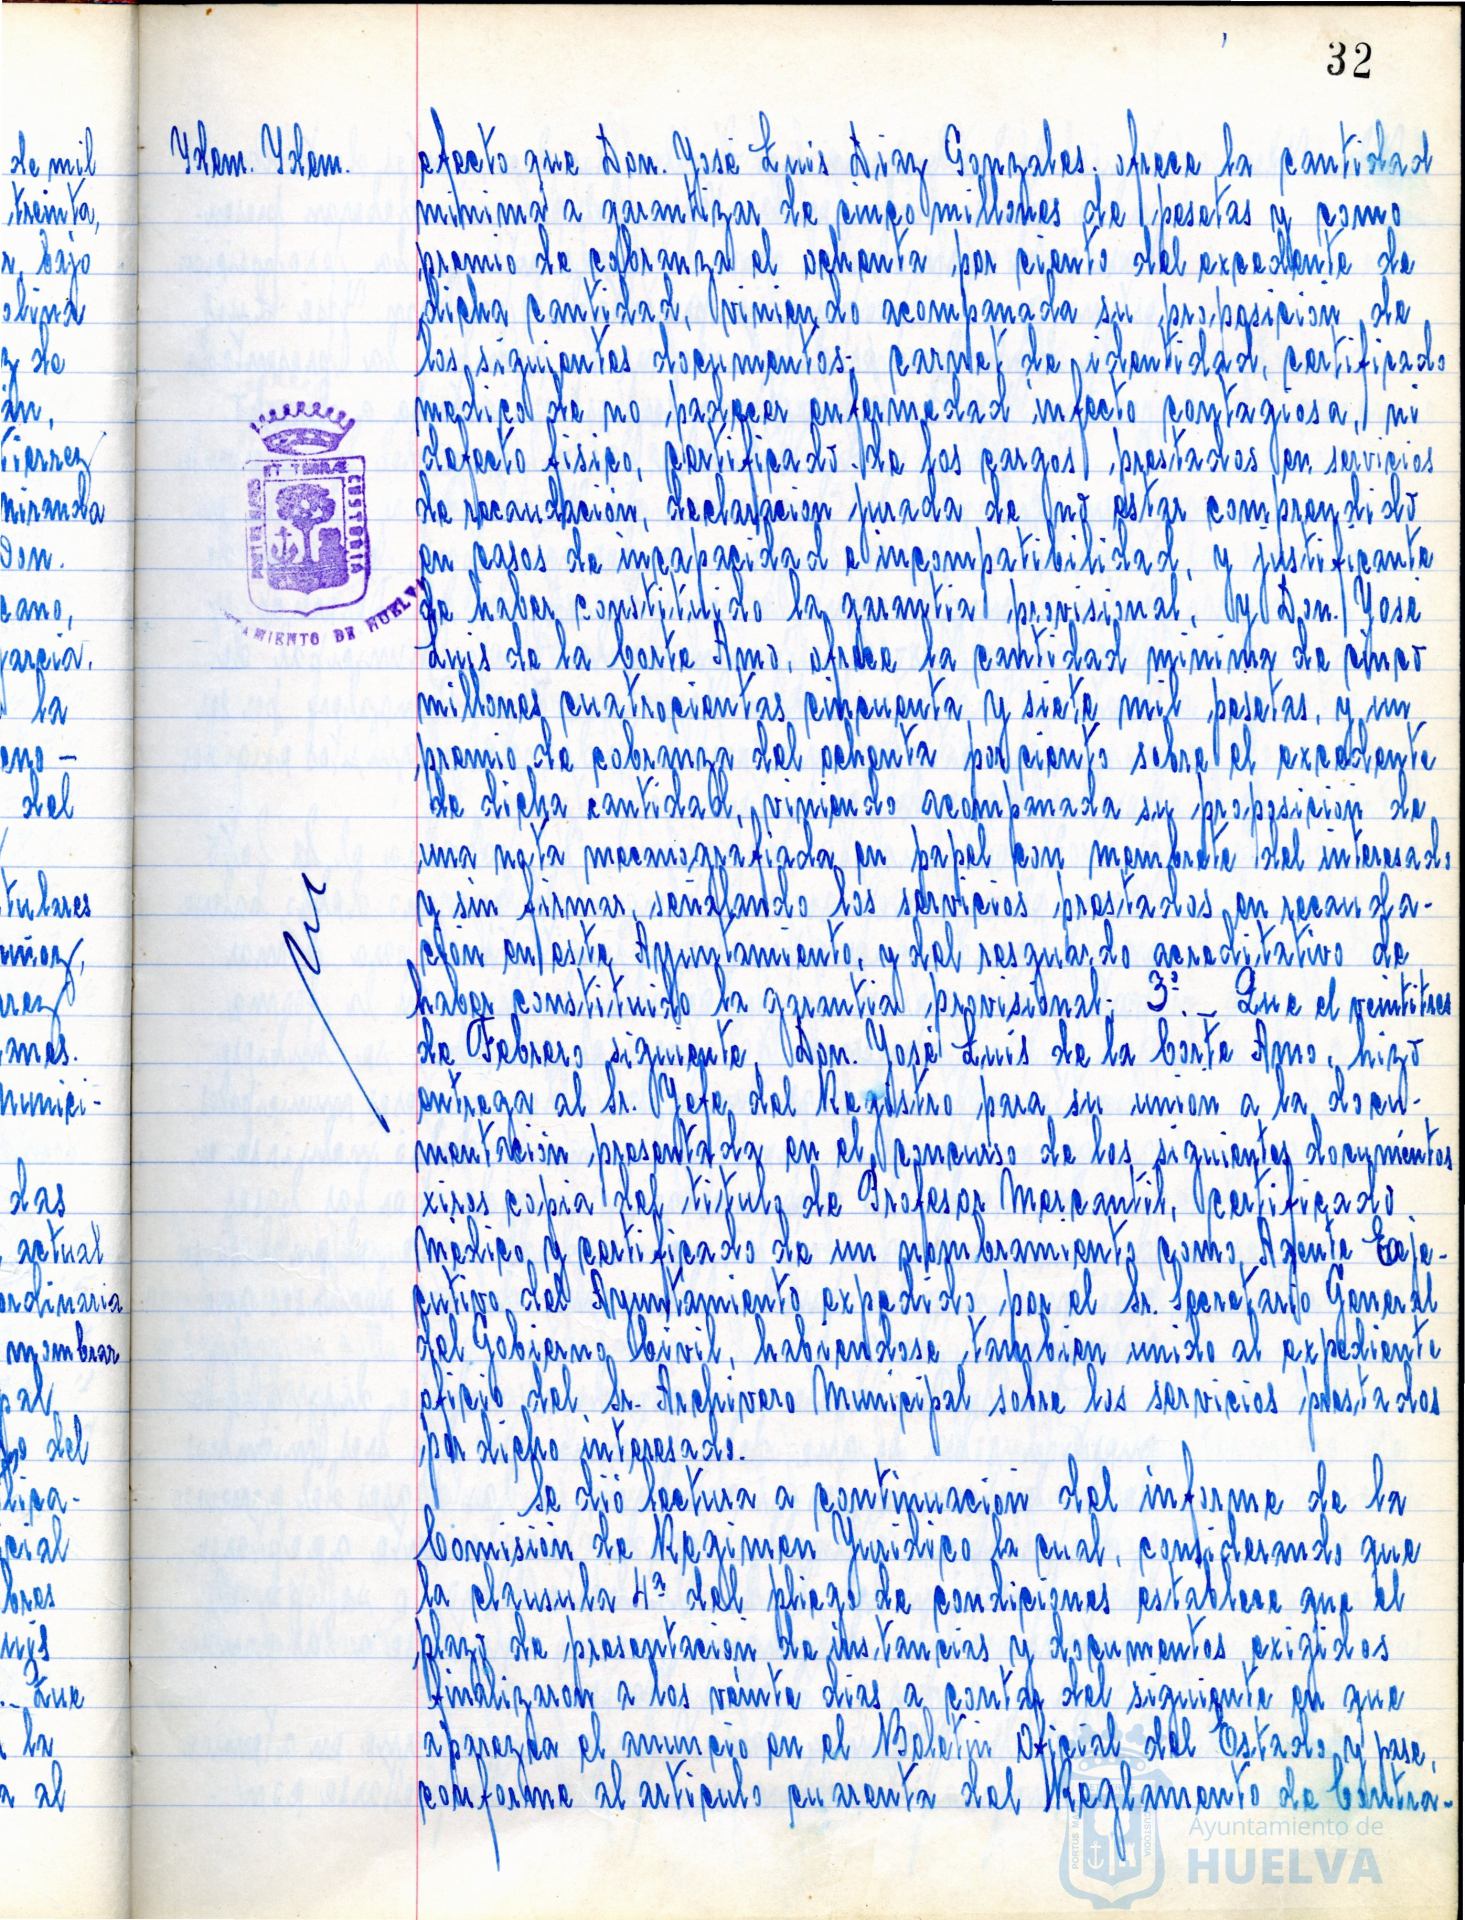 32
de mil
treinta,
bajo
z de
tierrez
miranda
Don.
cano,
garcia.
la
del
tulares
anes.
munici-
das
actual
ordinaria
nombrar
pal
del
cial
Que
la
al
Ydem. Ydem.
PORTUS MARIS ET TERRAE CUSTODIA
AMIENTO DE HUELVA
efecto que Don. José Luis Diaz Gonzales. ofrece la cantidad
minima a garantizar de cinco millones de pesetas y como
premio de cobranza el ochenta por ciento del excedente de
dicha cantidad, viniendo acompañada su proposición de
los siguientes documentos; carnet de identidad, certificado
medico de no padecer enfermedad infecto contagiosa, ni
defecto fisico, certificado de los cargos prestados en servicios
de recaudación, declaracion jurada de no estar comprendido
en casos de incapacidad e incompatibilidad, y justificante
de haber constituido la garantia provisional, y Don. José
Luis de la Corte Amo, ofrece la cantidad minima de cinco
millones cuatrocientas cincuenta y siete mil pesetas, y un
premio de cobranza del ochenta por ciento sobre el excedente
de dicha cantidad, viniendo acompañada su proposición de
una nota mecanografiada en papel con membrete del interesado
y sin firmar, señalando los servicios prestados en recauda-
ción en este Ayuntamiento, y del resguardo acreditativo de
haber constituido la garantia provisional; 3º.- Que el veintitres
de Febrero siguiente, Don. José Luis de la Corte Amo, hizo
entrega al Sr. Jefe del Registro para su unión a la docu-
mentación presentada en el concurso de los siguientes documentos
xiros copia del titulo de Profesor Mercantil, certificado
médico y certificado de un nombramiento como Agente Eje-
cutivo del Ayuntamiento expedido por el Sr. Secretario General
del Gobierno Civil, habiendose tambien unido al expediente
oficio del Sr. Archivero Municipal sobre los servicios prestados
por dicho interesado.
Se dió lectura a continuación del informe de la
Comisión de Regimen Juridico la cual, considerando que
la clausula 4ª del pliego de condiciones establece que el
plazo de presentación de instancias y documentos exigidos
finalizaron a los veinte dias a contar del siguiente en que
aparezca el anuncio en el Boletin Oficial del Estado, y que,
conforme al articulo cuarenta del Reglamento de Contra-
Ayuntamiento de
HUELVA